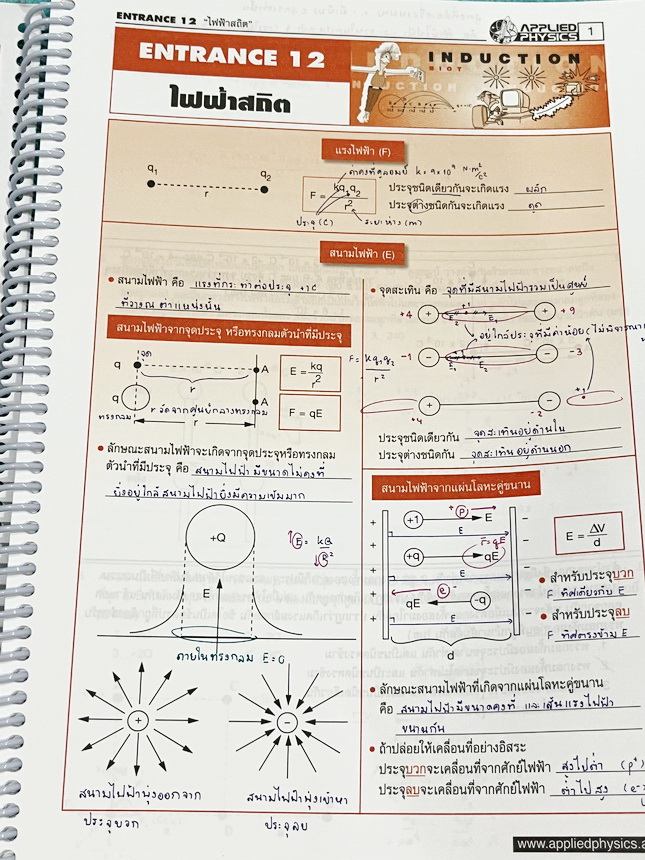 ENTRANCE 12 "ไฟฟ้าสถิต"
APPLIED PHYSICS 1
ENTRANCE 12
INDUCTION
RIOT
ไฟฟ้าสถิต
แรงไฟฟ้า (F)
ค่าคงที่คูลอมบ์ k = 9×10⁹ N·m²/C²
q₁ q₂
r
F = kq₁q₂/r²
ประจุชนิดเดียวกันจะเกิดแรง ผลัก
ประจุต่างชนิดกันจะเกิดแรง ดูด
ประจุ (C) ระยะห่าง (m)
สนามไฟฟ้า (E)
สนามไฟฟ้า คือ แรงที่กระทำต่อประจุ +1C
ที่วาง ณ ตำแหน่งนั้น
สนามไฟฟ้าจากจุดประจุ หรือทรงกลมตัวนำที่มีประจุ
q จุด A
r
E = kq/r²
q A
F = qE
ทรงกลม r วัดจากศูนย์กลางทรงกลม
r
ลักษณะสนามไฟฟ้าจะเกิดจากจุดประจุหรือทรงกลม
ตัวนำที่มีประจุ คือ สนามไฟฟ้ามีขนาดไม่คงที่
ยิ่งอยู่ใกล้สนามไฟฟ้ายิ่งมีความเข้มมาก
+Q
↑E = kQ/↓R²
E
ภายในทรงกลม E=0
+ −
สนามไฟฟ้าพุ่งออกจาก
ประจุบวก
สนามไฟฟ้าพุ่งเข้าหา
ประจุลบ
จุดสะเทิน คือ จุดที่มีสนามไฟฟ้ารวมเป็นศูนย์
+4 + +1 + +9
E₂ E₁
อยู่ใกล้ประจุที่มีค่าน้อย (ไม่พิจารณา
F = kq₁q₂/r²
-1 − − -3
E₂ E₁
+ − +1
+4 -2
ประจุชนิดเดียวกัน จุดสะเทินอยู่ด้านใน
ประจุต่างชนิดกัน จุดสะเทินอยู่ด้านนอก
สนามไฟฟ้าจากแผ่นโลหะคู่ขนาน
+1 P E
E
F=qE
+q qE
E
e
qE -q
E
d
E = ΔV/d
สำหรับประจุบวก
F ทิศเดียวกับ E
สำหรับประจุลบ
F ทิศตรงข้าม E
ลักษณะสนามไฟฟ้าที่เกิดจากแผ่นโลหะคู่ขนาน
คือ สนามไฟฟ้ามีขนาดคงที่ และเส้นแรงไฟฟ้า
ขนานกัน
ถ้าปล่อยให้เคลื่อนที่อย่างอิสระ
ประจุบวกจะเคลื่อนที่จากศักย์ไฟฟ้า สูงไปต่ำ (p⁺)
ประจุลบจะเคลื่อนที่จากศักย์ไฟฟ้า ต่ำไปสูง (e⁻)
www.appliedphysics.a